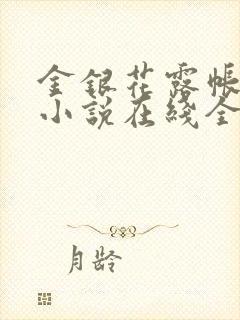 金银花露帐
小说在线全
月龄